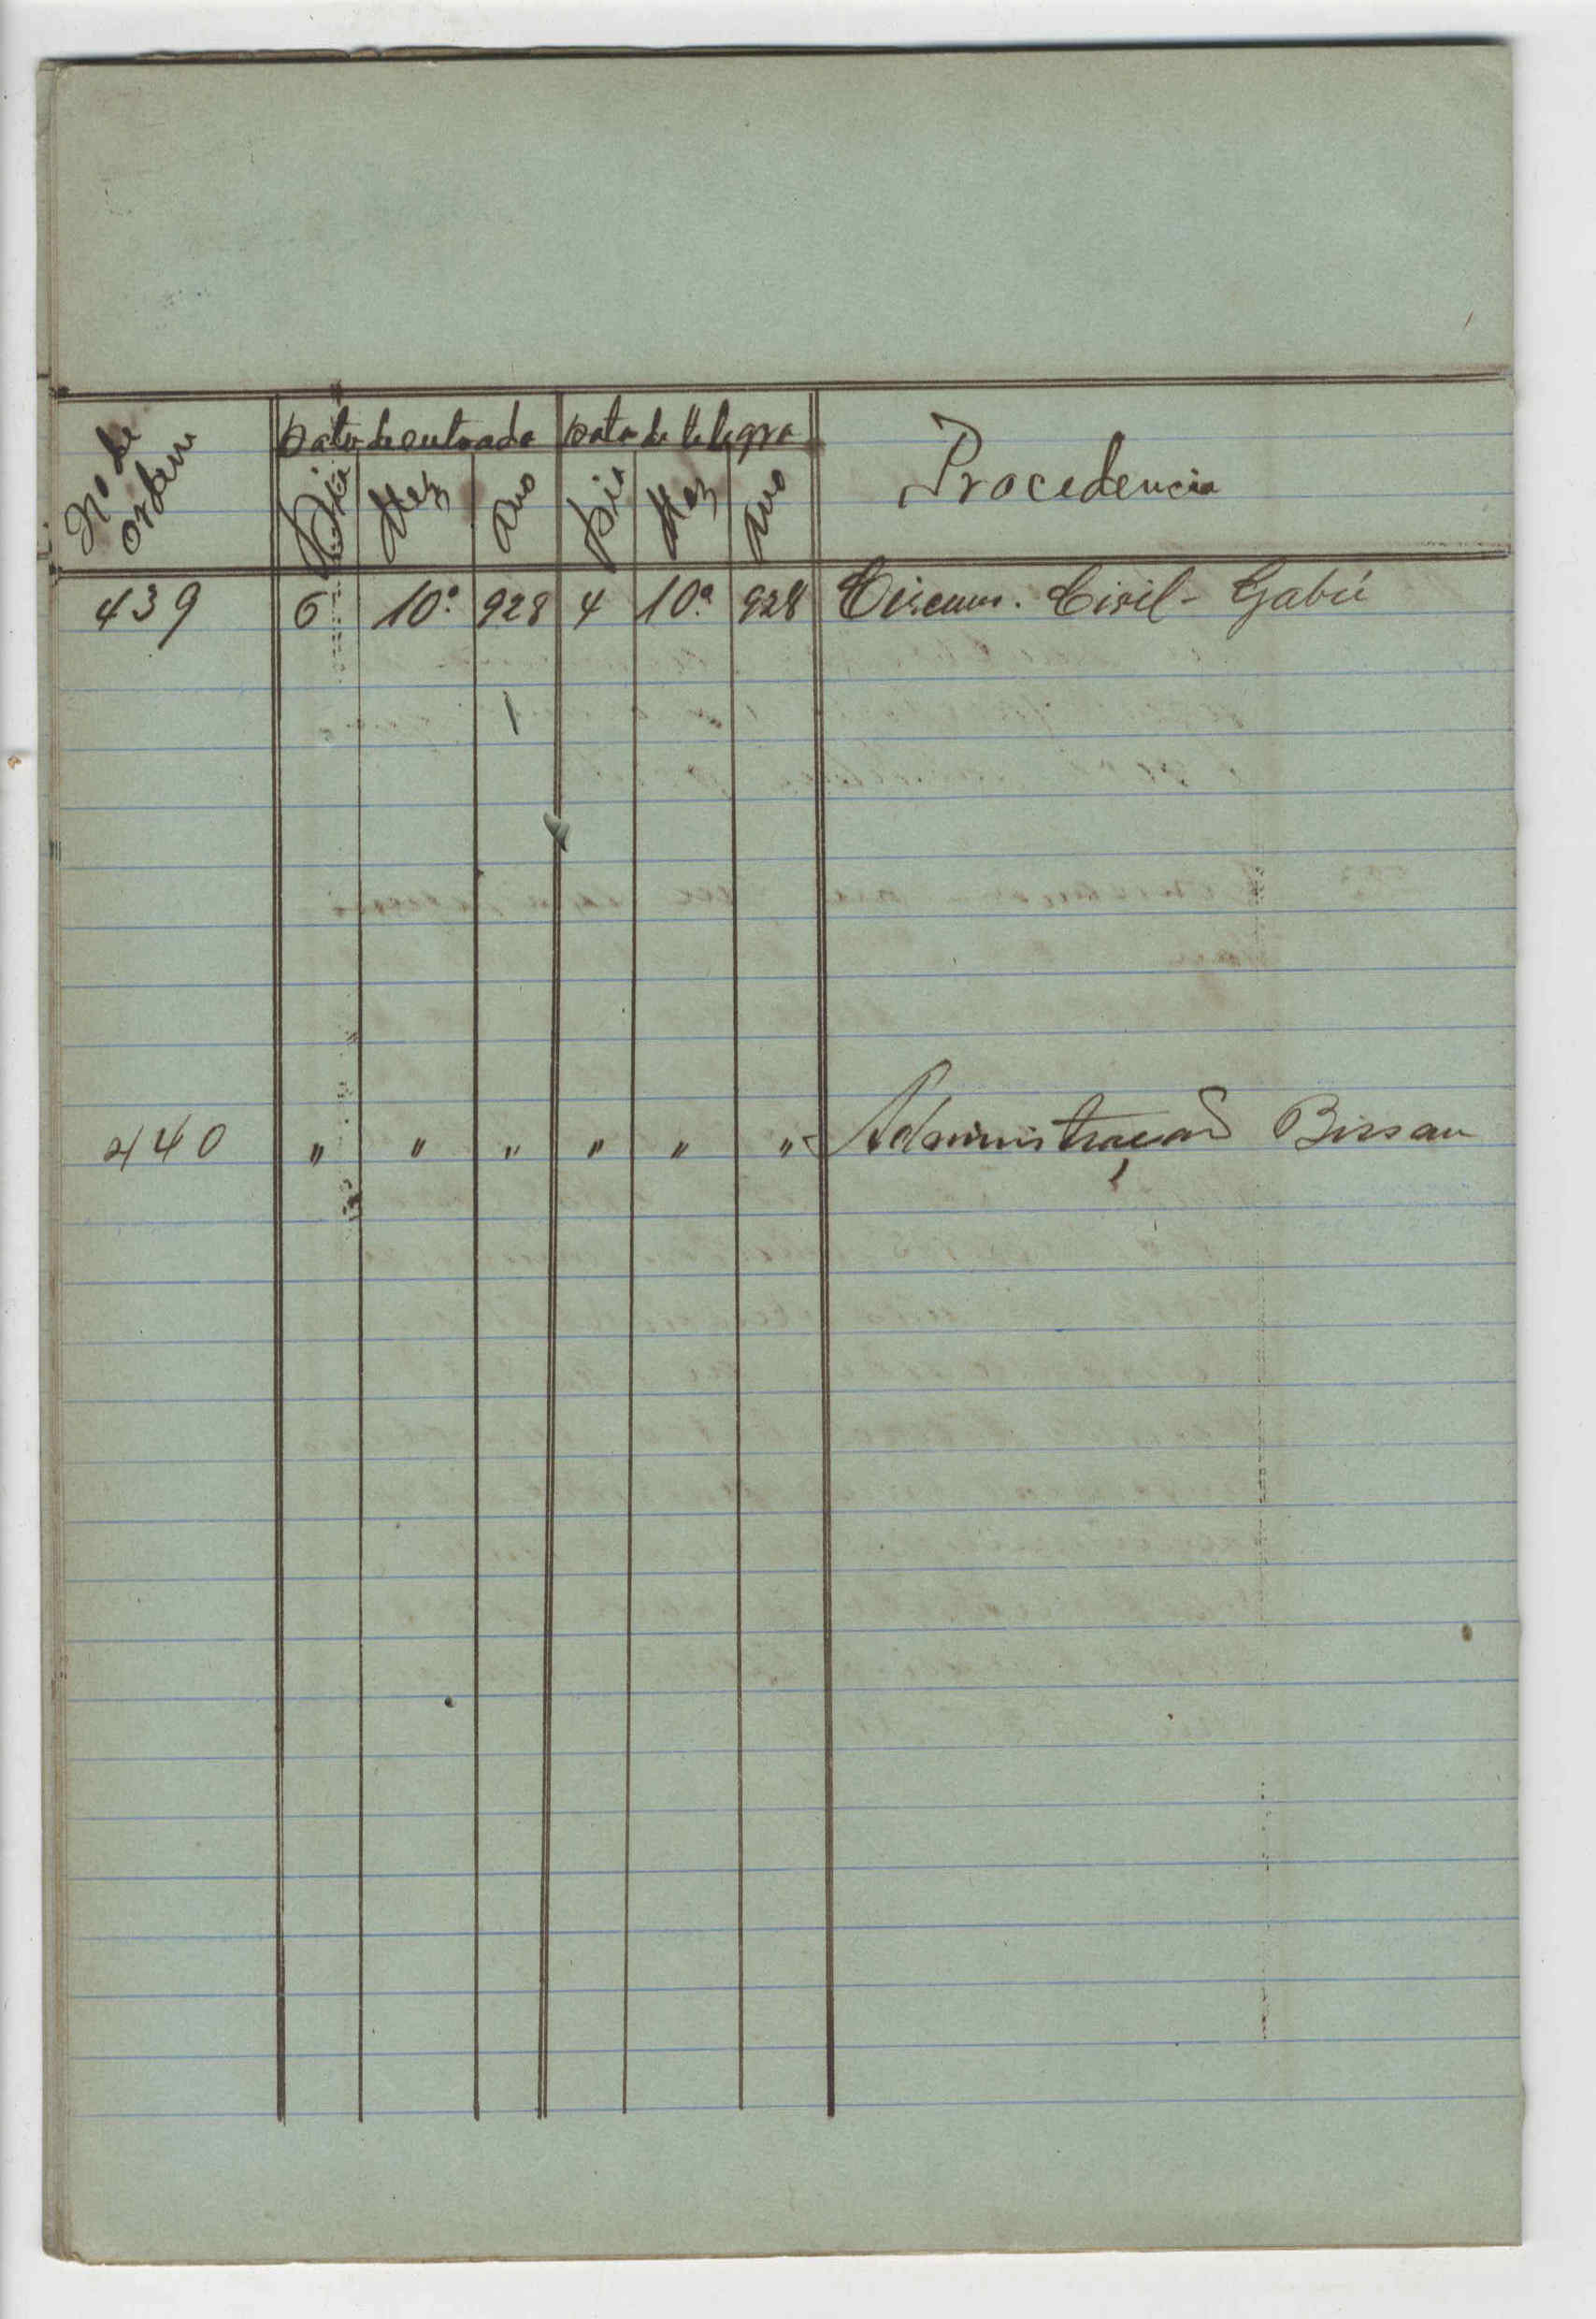 Nº de ordem Data de entrada Data de telegra Procedencia
Dia Mez Ano Dia Mez Ano
439 6 10º 928 4 10º 928 Circuns. Civil - Gabú
440 " " " " " " Administração Bissau